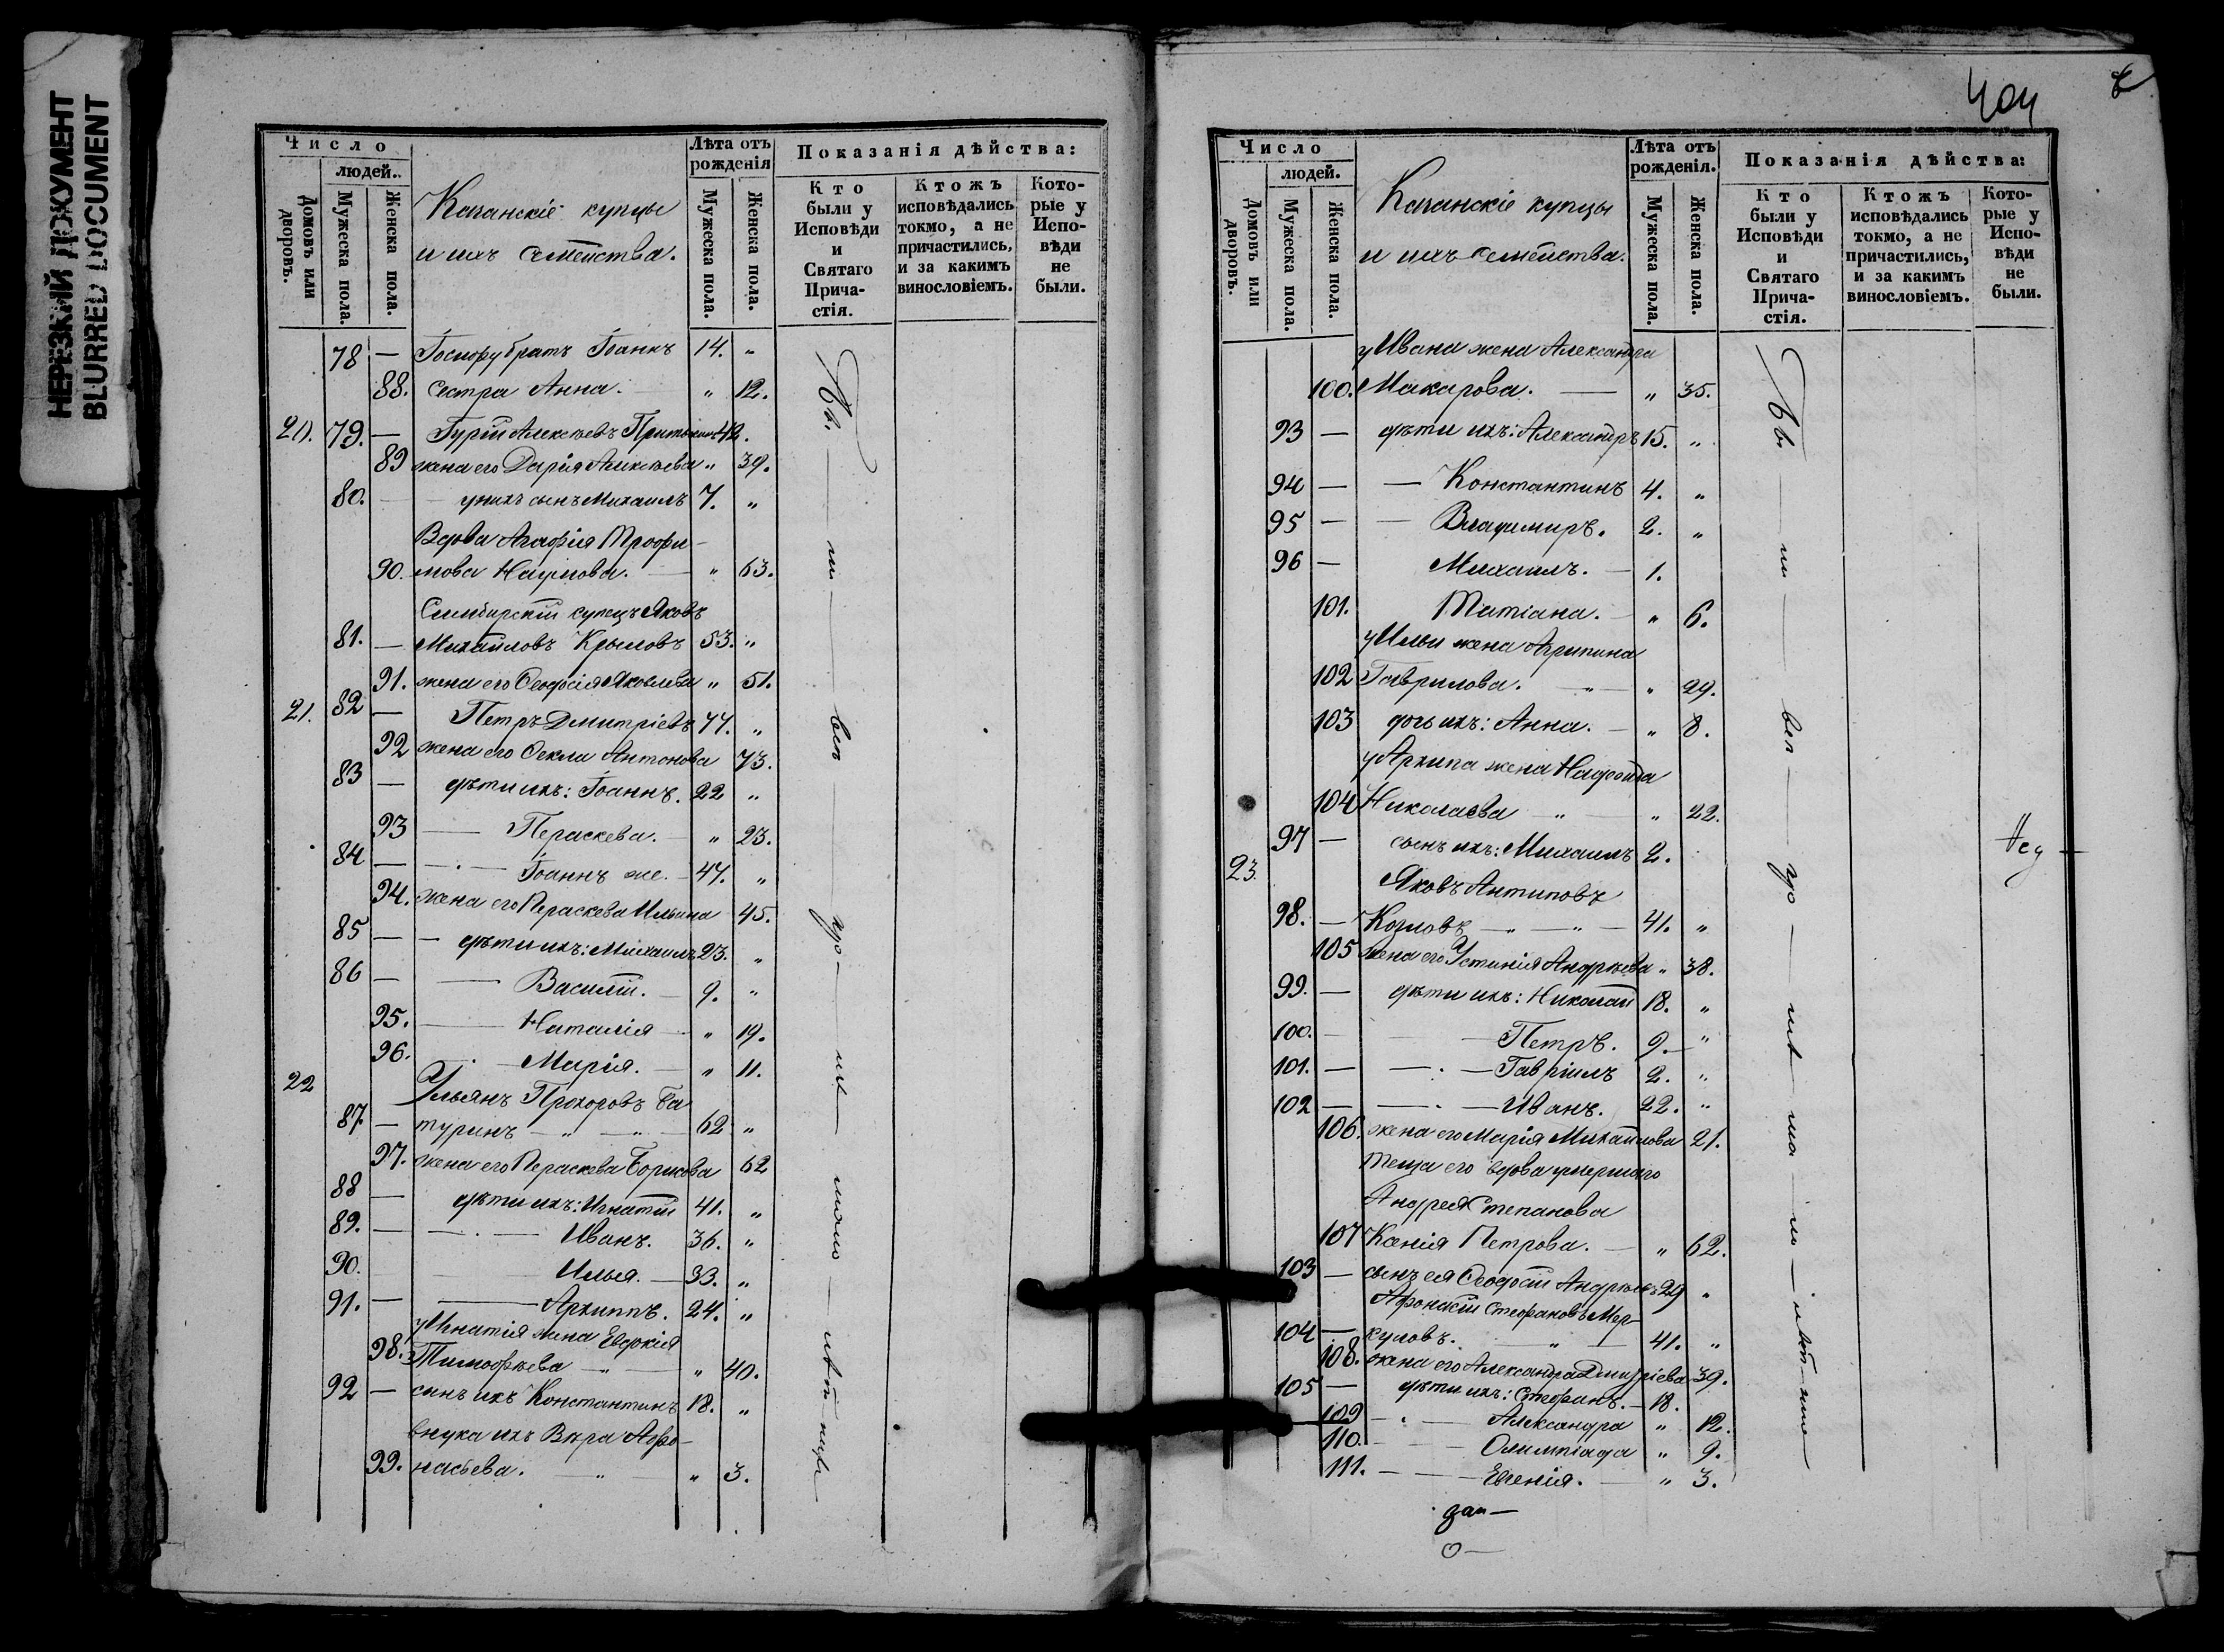 НЕРЕЗКИЙ ДОКУМЕНТ
BLURRED DOCUMENT
Число
людей.
Домовъ или дворовъ.
Мужеска пола.
Женска пола.
Казанскіе купцы
и ихъ семейства.
Лѣта отъ рожденія
Мужеска пола.
Женска пола.
Показанія дѣйства:
Кто были у Исповѣди и Святаго Прича-стія.
Ктожъ исповѣдались токмо, а не причастились, и за какимъ винословіемъ.
Кото-рые у Испо-вѣди не были.
78 — братъ Іоаннъ 14. „
88. сестра Анна. „ 12.
20. 79. — Гурій Алексѣевъ 42.
89 жена его Дарія Алексѣева „ 39.
80. — у нихъ сынъ Михаилъ 7. „
Вдова Агафія Трофи-
90. мова Наумова. — „ 63.
Симбирскій купецъ Яковъ
81. — Михайловъ Крыловъ 53. „
91. жена его Ѳеодосія Яковлева „ 51.
21. 82 — Петръ Дмитріевъ 77. „
92 жена его Ѳекла Антонова 73.
83 — дѣти ихъ: Іоаннъ. 22 „
93 — Параскева. — „ 23.
84 — — Іоаннъ же. — 47. „
94. жена его Параскева Ильина 45.
85 — — дѣти ихъ: Михаилъ 23. „
86 — — Василій. — 9. „
95. — Наталія — „ 19.
96. — Марія. — „ 11.
22 Ульянъ Прохоровъ Ба
87. — туринъ — „ — „ — 62 „
97. жена его Параскева Борисова 62
88 — дѣти ихъ: Игнатій 41. „
89. — — Иванъ. 36. „
90. Илья. — 33. „
91. — — Архиппъ. 24. „
у Игнатія жена Евдокія
98. Тимофѣева — „ — „ 40.
92 — сынъ ихъ Константинъ 18. „
внука ихъ Вѣра Афо-
99. насьева. „ „ 3.
404
Число
людей.
Домовъ или дворовъ.
Мужеска пола.
Женска пола.
Казанскіе купцы
и ихъ семейства.
Лѣта отъ рожденія.
Мужеска пола.
Женска пола.
Показанія дѣйства:
Кто были у Исповѣди и Святаго Прича-стія.
Ктожъ исповѣдались токмо, а не причастились, и за какимъ винословіемъ.
Кото-рые у Испо-вѣди не были.
у Ивана жена Александра
100. Макарова. — „ 35.
93 — дѣти ихъ: Александръ 15. „
94 — — Константинъ 4. „
95 — — Владимиръ. 2. „
96 — Михаилъ. — 1.
101. Татіана. — „ 6.
у Ильи жена Агрипина
102 Гаврилова. — „ — „ 29.
103 дочь ихъ: Анна. — „ 8.
у Архипа жена
104 Николаева — „ — „ 22.
97 — сынъ ихъ: Михаилъ 2.
23. Яковъ Антиповъ
98. — Козловъ — „ — „ — 41. „
105 жена его Устинія Андрѣева „ 38.
99. — дѣти ихъ: Николай 18. „
100. — — Петръ. 9. — „
101. — — Гавріилъ 2. „
102 — — Иванъ. 22. „
106. жена его Марія Михайлова 21.
теща его вдова умершаго
Андрея Степанова
107 Ксенія Петрова. — „ 62.
103 — сынъ ея Ѳеодосій Андрѣевъ 29 „
Афонасій Стефановъ Мер-
104 — куловъ. „ — 41. „
108. жена его Александра Дмитріева 39.
105 — дѣти ихъ: Стефанъ. — 18.
109 — — Александра „ 12.
110. — — Олимпіада „ 9.
111. — — Евгенія. — „ 3.